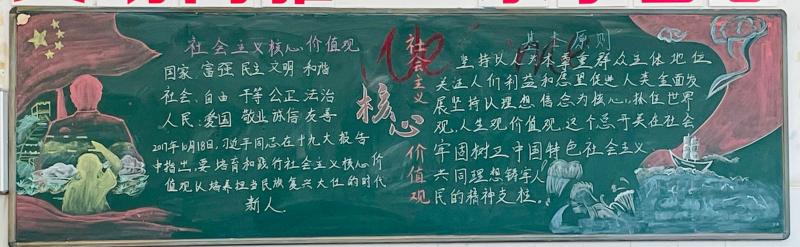 社会主义核心价值观
国家 富强 民主 文明 和谐
社会:自由 平等 公正 法治
人民:爱国 敬业 诚信 友善
2017年10月18日,习近平同志在十九大报告
中指出,要培育和践行社会主义核心价
值观以培养担当民族复兴大任的时代
新人.
社会主义
核心
价值观
基本原则
坚持以人为本尊重群众主体地位
关注人们利益和愿望促进人类全面发
展坚持以理想信念为核心,抓住世界
观,人生观,价值观,这个总开关在社会
牢固树立中国特色社会主义
共同理想铸牢人
民的精神支柱。